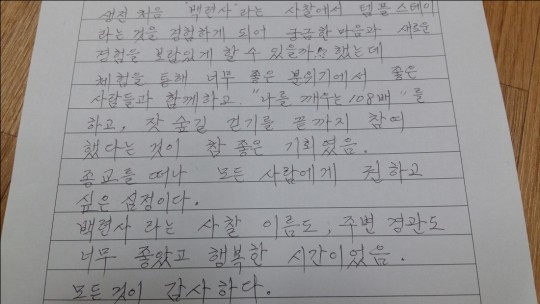 생전 처음 "백련사"라는 사찰에서 템플스테이
라는 것을 경험하게 되어 궁금한 마음과 새로운
경험을 보람있게 할 수 있을까? 했는데
체험을 통해 너무 좋은 분위기에서 좋은
사람들과 함께하고. "나를 깨우는 108배"를
하고, 잣 숲길 걷기를 끝까지 참여
했다는 것이 참 좋은 기회였음.
종교를 떠나 모든 사람에게 권하고
싶은 심정이다.
백련사 라는 사찰 이름도, 주변 경관도
너무 좋았고 행복한 시간이었음.
모든것이 감사하다.